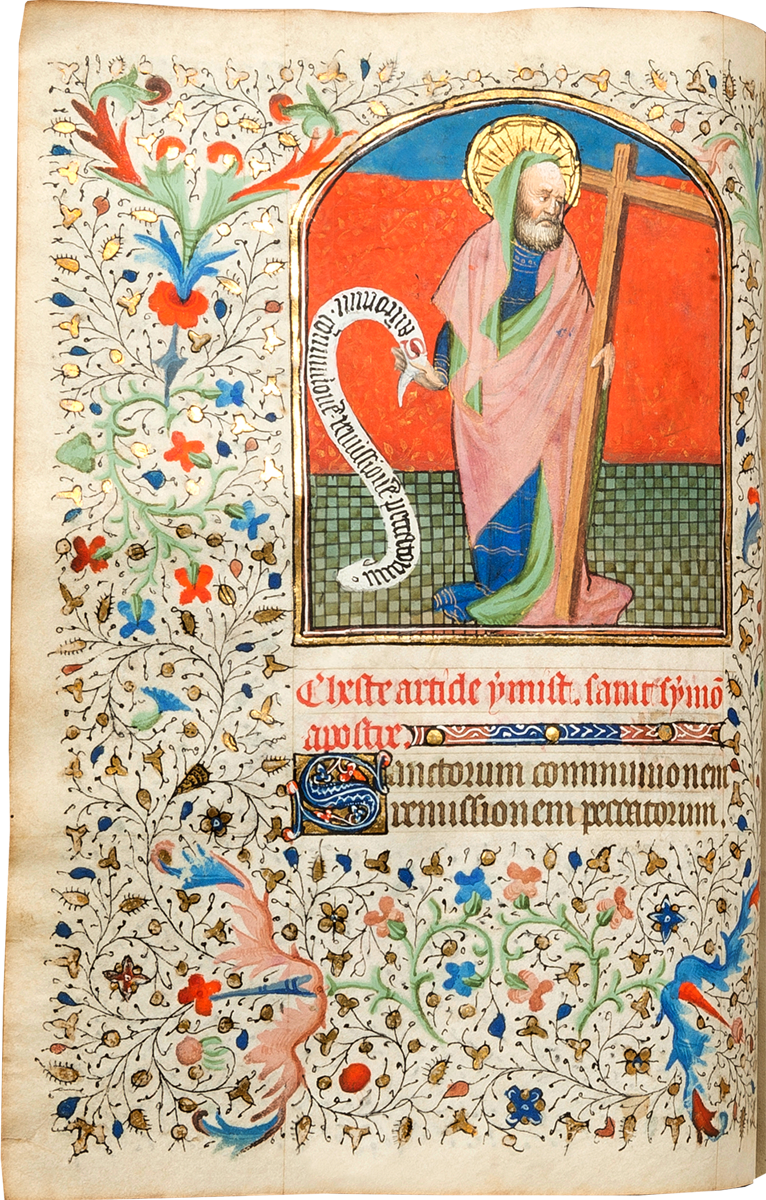 Sanctorum. remissionē. peccatorum
Cheste article y mist. saint symō
apostre.
Sanctorum communionem
remissionem peccatorum.